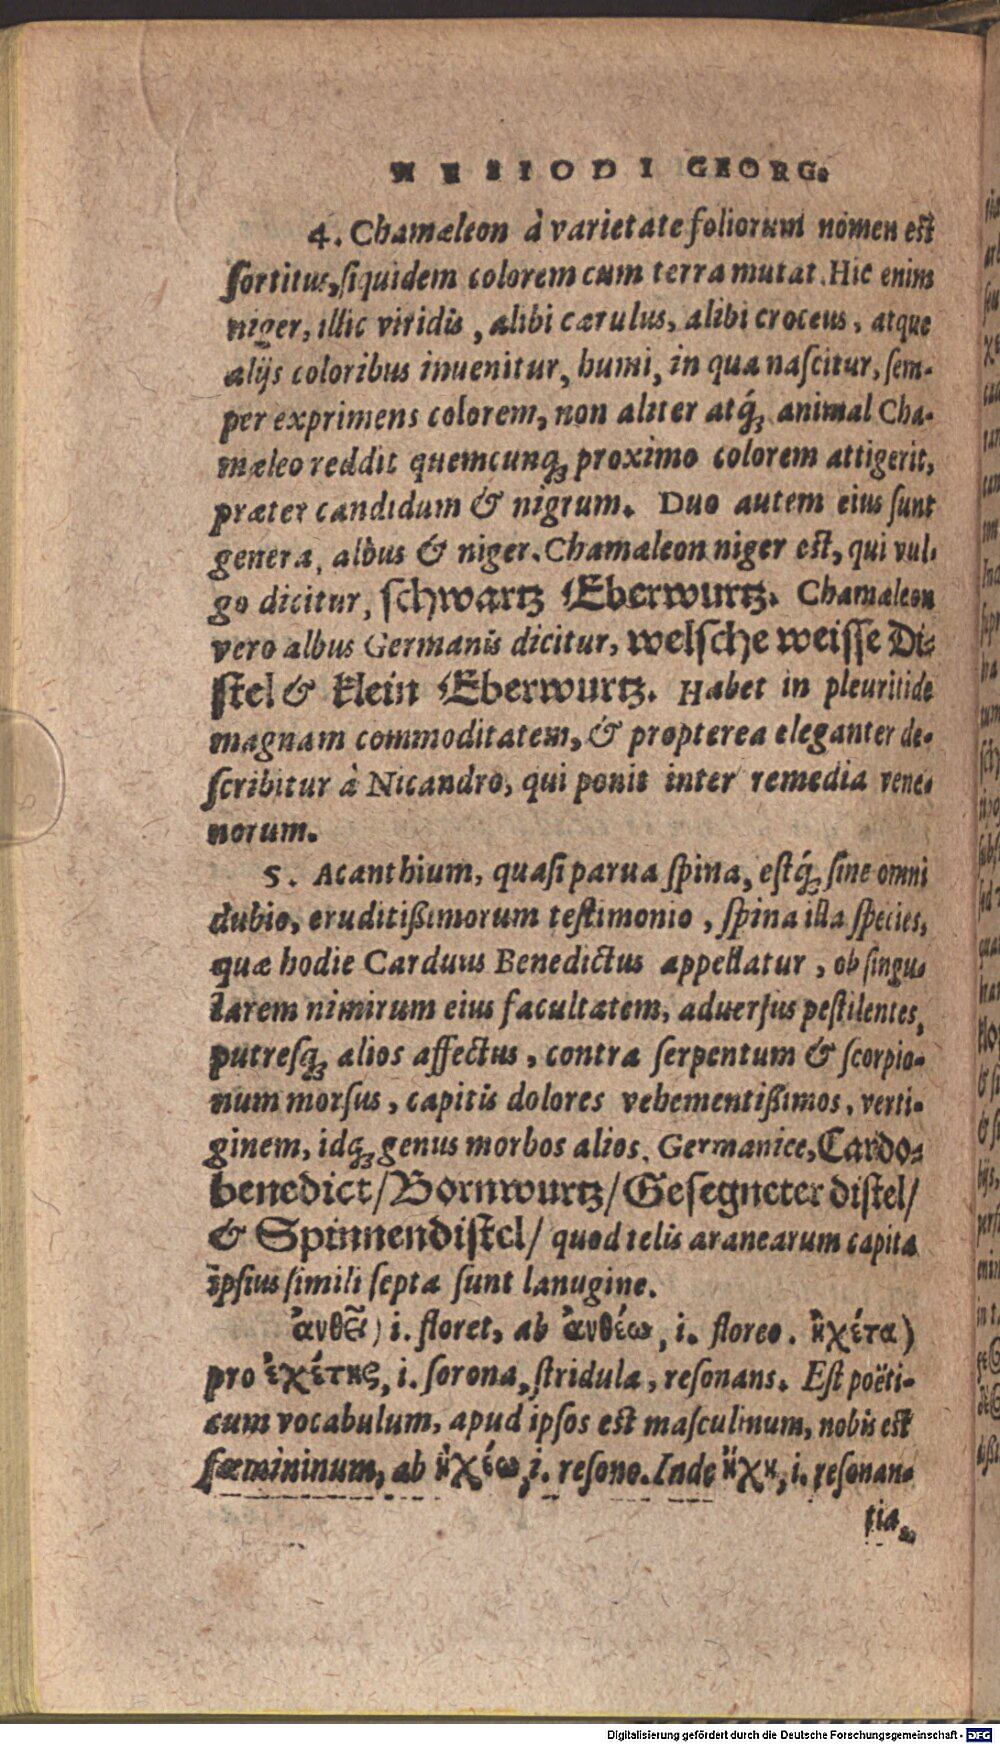 HESIODI GEORG.
4. Chamæleon à varietate foliorum nomen est
sortitus, siquidem colorem cum terra mutat. Hic enim
niger, illic viridis, alibi cærulus, alibi croceus, atque
alijs coloribus inuenitur, humi, in qua nascitur, sem-
per exprimens colorem, non aliter atq́ꝫ animal Cha-
mæleo reddit quemcunqꝫ proximo colorem attigerit,
præter candidum & nigrum. Duo autem eius sunt
genera, albus & niger. Chamæleon niger est, qui vul-
go dicitur, schwartz Eberwurtz. Chamæleon
vero albus Germanis dicitur, welsche weisse Di-
stel & klein Eberwurtz. Habet in pleuritide
magnam commoditatem, & propterea eleganter de-
scribitur à Nicandro, qui ponit inter remedia vene-
norum.
5. Acanthium, quasi parua spina, estq́ꝫ sine omni
dubio, eruditißimorum testimonio, spina illa species,
quæ hodie Carduus Benedictus appellatur, ob singu-
larem nimirum eius facultatem, aduersus pestilentes,
putresqꝫ alios affectus, contra serpentum & scorpio-
num morsus, capitis dolores vehementißimos, verti-
ginem, idqꝫ genus morbos alios. Germanice, Cardo-
benedict/ Bornwurtz/ Gesegneter distel/
& Spinnendistel/ quod telis aranearum capita
ipsius simili septa sunt lanugine.
ἀνθεῖ) i. floret, ab ἀνθέω, i. floreo. ἠχέτα)
pro ἠχέτης, i. sorona, stridula, resonans. Est poëti-
cum vocabulum, apud ipsos est masculinum, nobis est
fœmininum, ab ἠχέω, i. resono. Inde ἤχη, i. resonan-
tia,
Digitalisierung gefördert durch die Deutsche Forschungsgemeinschaft - DFG